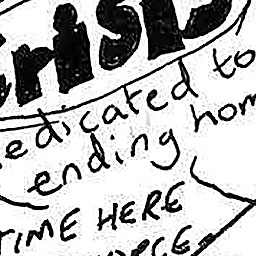 Crisis
dedicated to
ending hom
TIME HERE